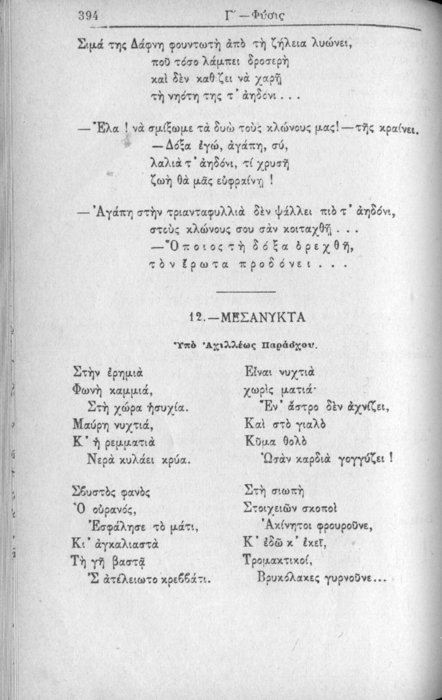 394
Γ΄ — Φύσις
Σιμά της Δάφνη φουντωτὴ ἀπὸ τὴ ζήλεια λυώνει,
ποῦ τόσο λάμπει δροσερὴ
καὶ δὲν καθίζει νὰ χαρῇ
τὴ νηότη της τ᾿ ἀηδόνι . . .
—Ἔλα ! νὰ σμίξωμε τὰ δυὼ τοὺς κλώνους μας!—τῆς κραίνει.
—Δόξα ἐγώ, ἀγάπη, σύ,
λαλιὰ τ᾿ ἀηδόνι, τί χρυσῆ
ζωὴ θὰ μᾶς εὐφραίνῃ !
—Ἀγάπη στὴν τριανταφυλλιὰ δὲν ψάλλει πιὸ τ᾿ ἀηδόνι,
στοὺς κλώνους σου σὰν κοιταχθῇ . . .
—Ὅποιος τὴ δόξα ὀρεχθῇ,
τὸν ἔρωτα προδόνει . . .
12.—ΜΕΣΑΝΥΚΤΑ
Ὑπὸ Ἀχιλλέως Παράσχου.
Στὴν ἐρημιὰ
Φωνὴ καμμιά,
Στὴ χώρα ἡσυχία.
Μαύρη νυχτιά,
Κ᾿ ἡ ρεμματιὰ
Νερὰ κυλάει κρύα.
Σβυστὸς φανὸς
Ὁ οὐρανός,
Ἐσφάλησε τὸ μάτι,
Κι᾿ ἀγκαλιαστὰ
Τὴ γῆ βαστᾷ
Σ ἀτέλειωτο κρεββάτι.
Εἶναι νυχτιὰ
χωρὶς ματιά·
Ἕν᾿ ἄστρο δὲν ἀχνίζει,
Καὶ στὸ γιαλὸ
Κῦμα θολὸ
Ὡσὰν καρδιὰ γογγύζει !
Στὴ σιωπὴ
Στοιχειῶν σκοποὶ
Ἀκίνητοι φρουροῦνε,
Κ᾿ ἐδῶ κ᾿ ἐκεῖ,
Τρομακτικοί,
Βρυκόλακες γυρνοῦνε...